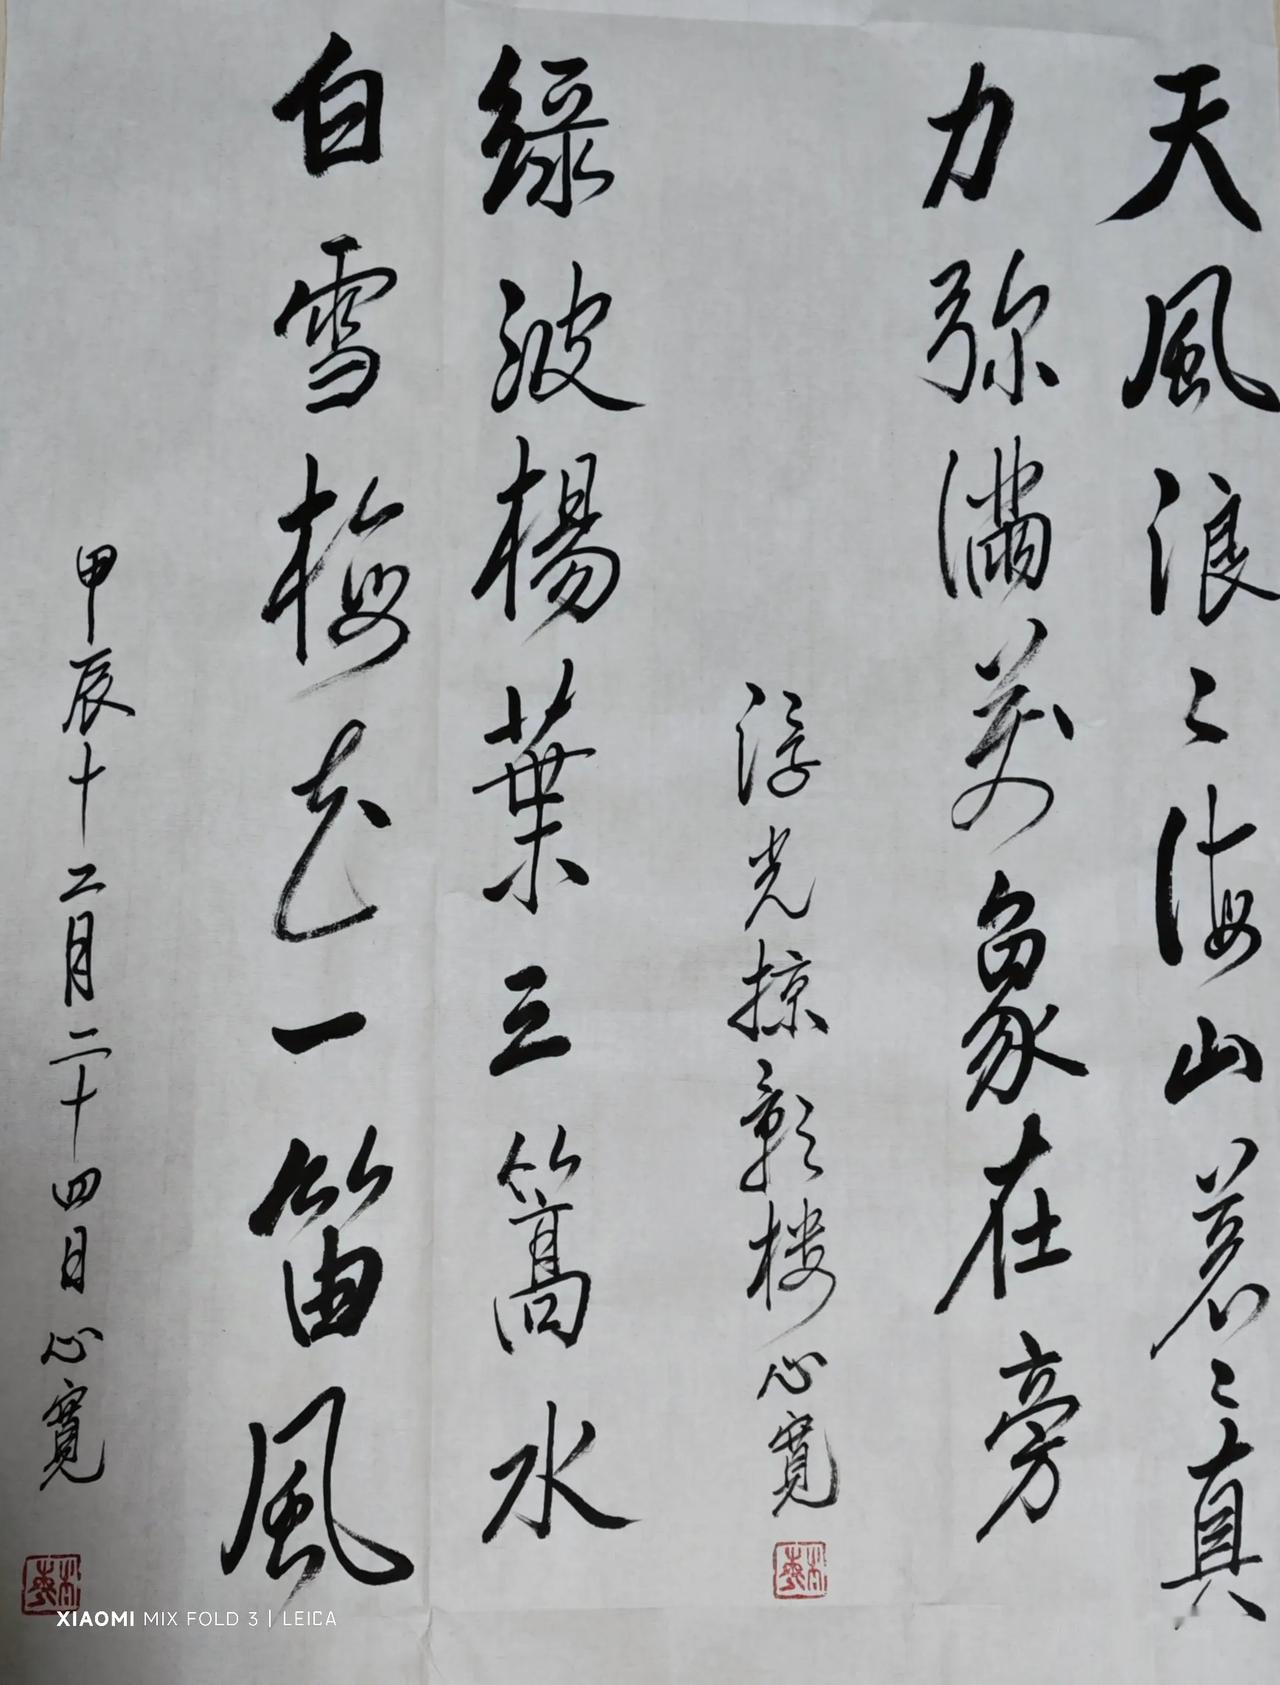 天風浪〻海山蒼〻真
力弥滿萬象在旁
浮光掠影樓心寬
綠波楊葉三篙水
白雪梅花一笛風
甲辰十二月二十四日心寬
XIAOMI MIX FOLD 3 | LEICA